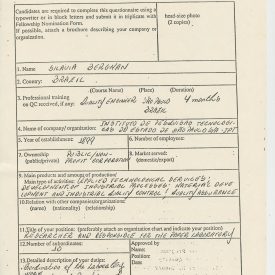 Candidates are required to complete this questionaire using a
typewriter or in block letters and submit it in triplicate with
Fellowship Nomination Form.
If possible, attach a brochure describing your company or
organization.
head-size photo
(2 copies)
1. Name: SILVIA BERGMAN
2. Country: BRAZIL
3. Professional training on QC received, if any:
(Course Name) (Place) (Duration)
QUALITY ENGINEER SÃO PAULO BRAZIL 4 months
4. Name of company/organization: INSTITUTO DE PESQUISAS TECNOLÓGICAS DO ESTADO DE SÃO PAULO S/A IPT
5. Year of establishment: 1899
6. Number of employees:
7. Ownership (public/private): PUBLIC/NON-PROFIT CORPORATION
8. Market served: (domestic/export)
9. Main products and amount of production/
Main type of activities: APPLIED TECHNOLOGICAL SERVICES;
DEVELOPMENT OF INDUSTRIAL PROCESSES; MATERIAL DEVELOPMENT AND INDUSTRIAL QUALITY CONTROL / QUALITY ASSURANCE
10. Relation with other companies/organizations:
(name) (nationality) (relationship)
11. Title of your position: (preferably attach an organization chart and indicate your position)
RESEARCHER AND RESPONSIBLE FOR THE PAPER LABORATORY
12. Number of subordinates: 10
Approved by
Name:
Position:
Date:
13. Detailed description of your duties:
Coordination of the Laboratory